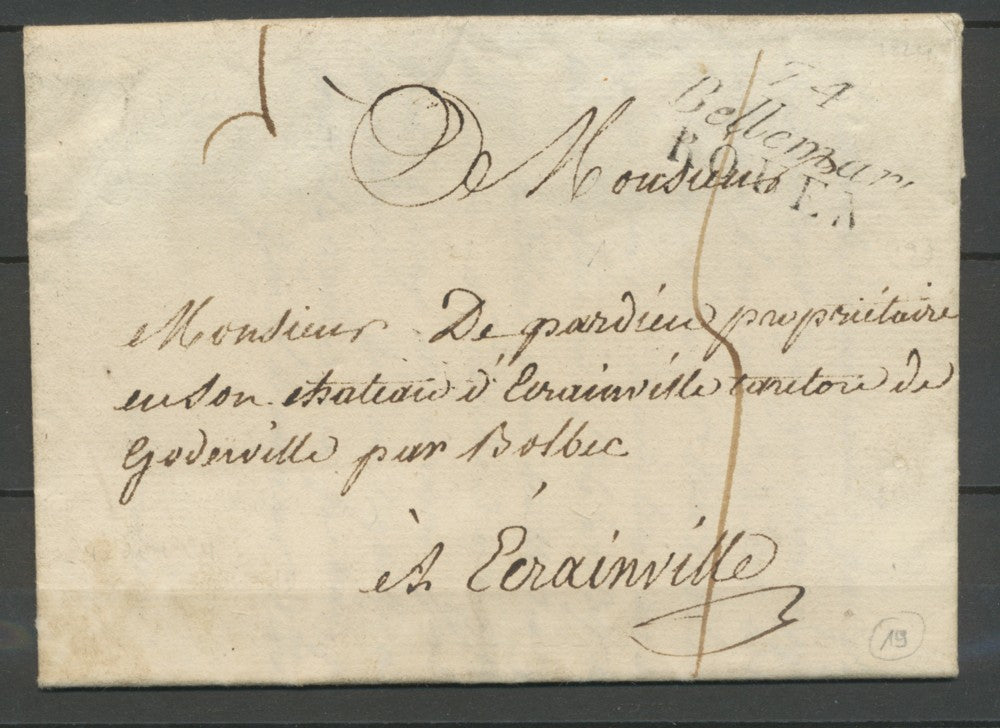 74
Bellemare
ROUEN
A Monsieur
Monsieur De pardieu propriétaire
en son chateau d'Ecrainville canton de
Goderville par Bolbec
à Ecrainville
19